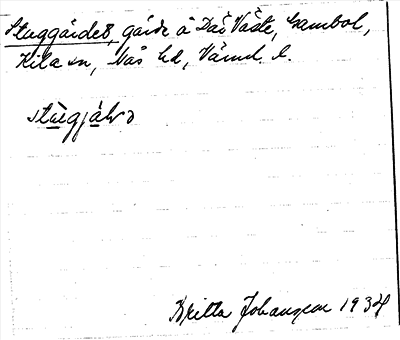 Stuggärdet, gärde å Där Väste, Gambol,
Kila sn, Näs hd, Värml. l.
stùgjálrə
Britta Johansson 1934